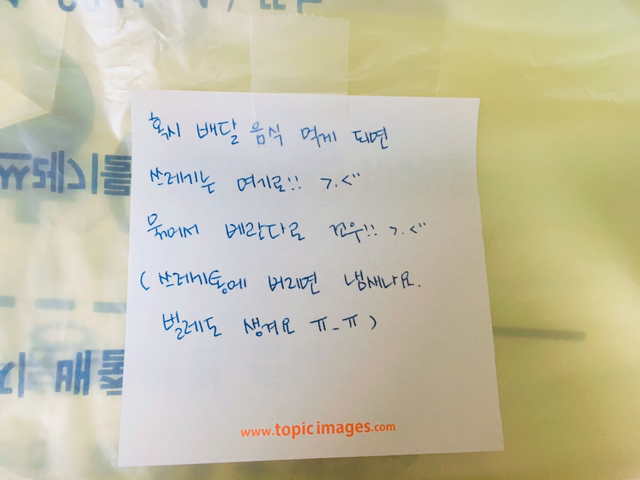 혹시 배달 음식 먹게 되면
쓰레기는 여기로!! >.<"
묶어서 베란다로 고우!! >.<"
( 쓰레기통에 버리면 냄새나요.
벌레도 생겨요 ㅠ_ㅠ )
www.topicimages.com